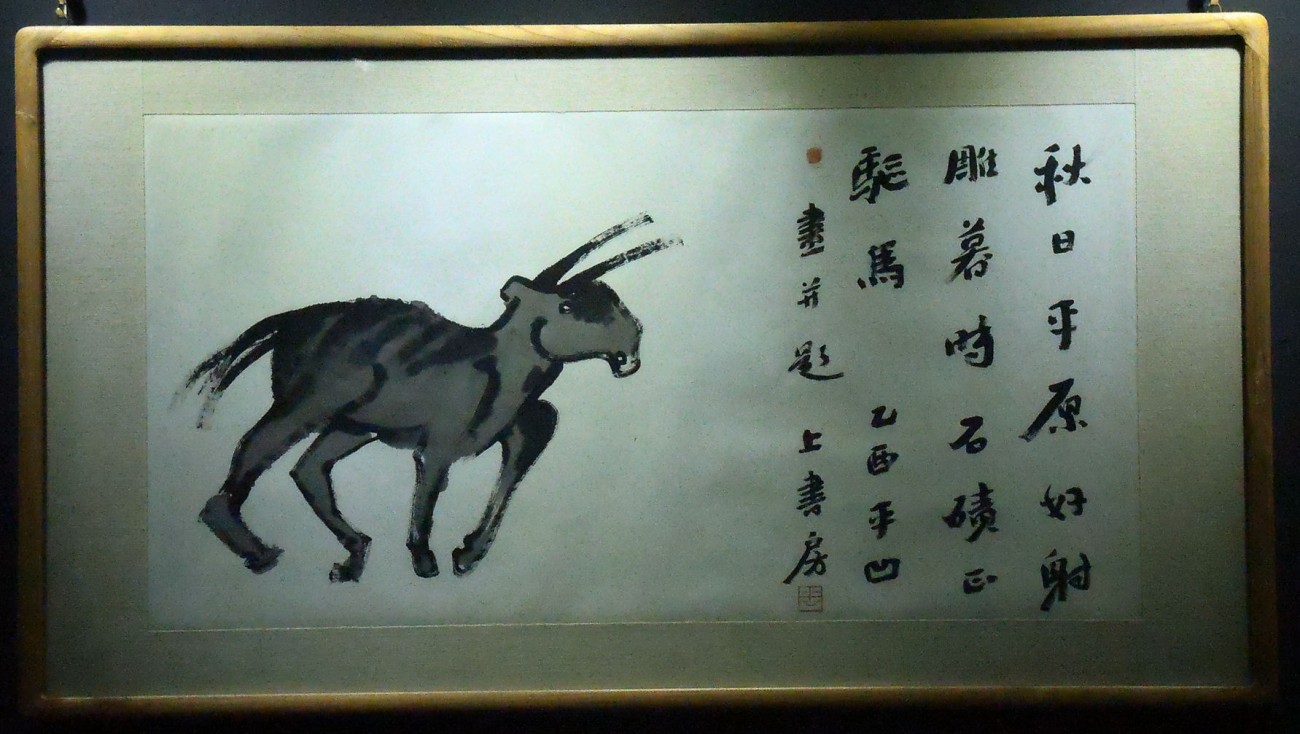 秋日平原好射
雕暮時石磧正
駞馬
乙酉平凹
畫并題 上書房